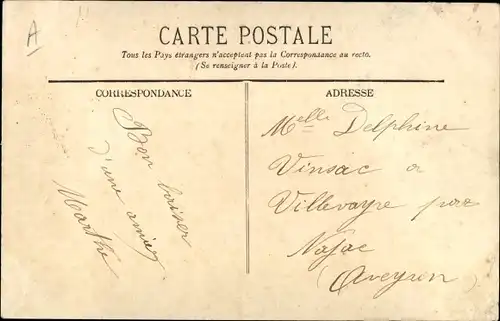 A
CARTE POSTALE
Tous les Pays étrangers n'acceptent pas la Correspondance au recto.
(Se renseigner à la Poste).
CORRESPONDANCE
Bon baiser
d'une amie
Marthe
ADRESSE
Melle Delphine
Vinsac a
Villevayre par
Najac
(Aveyron)